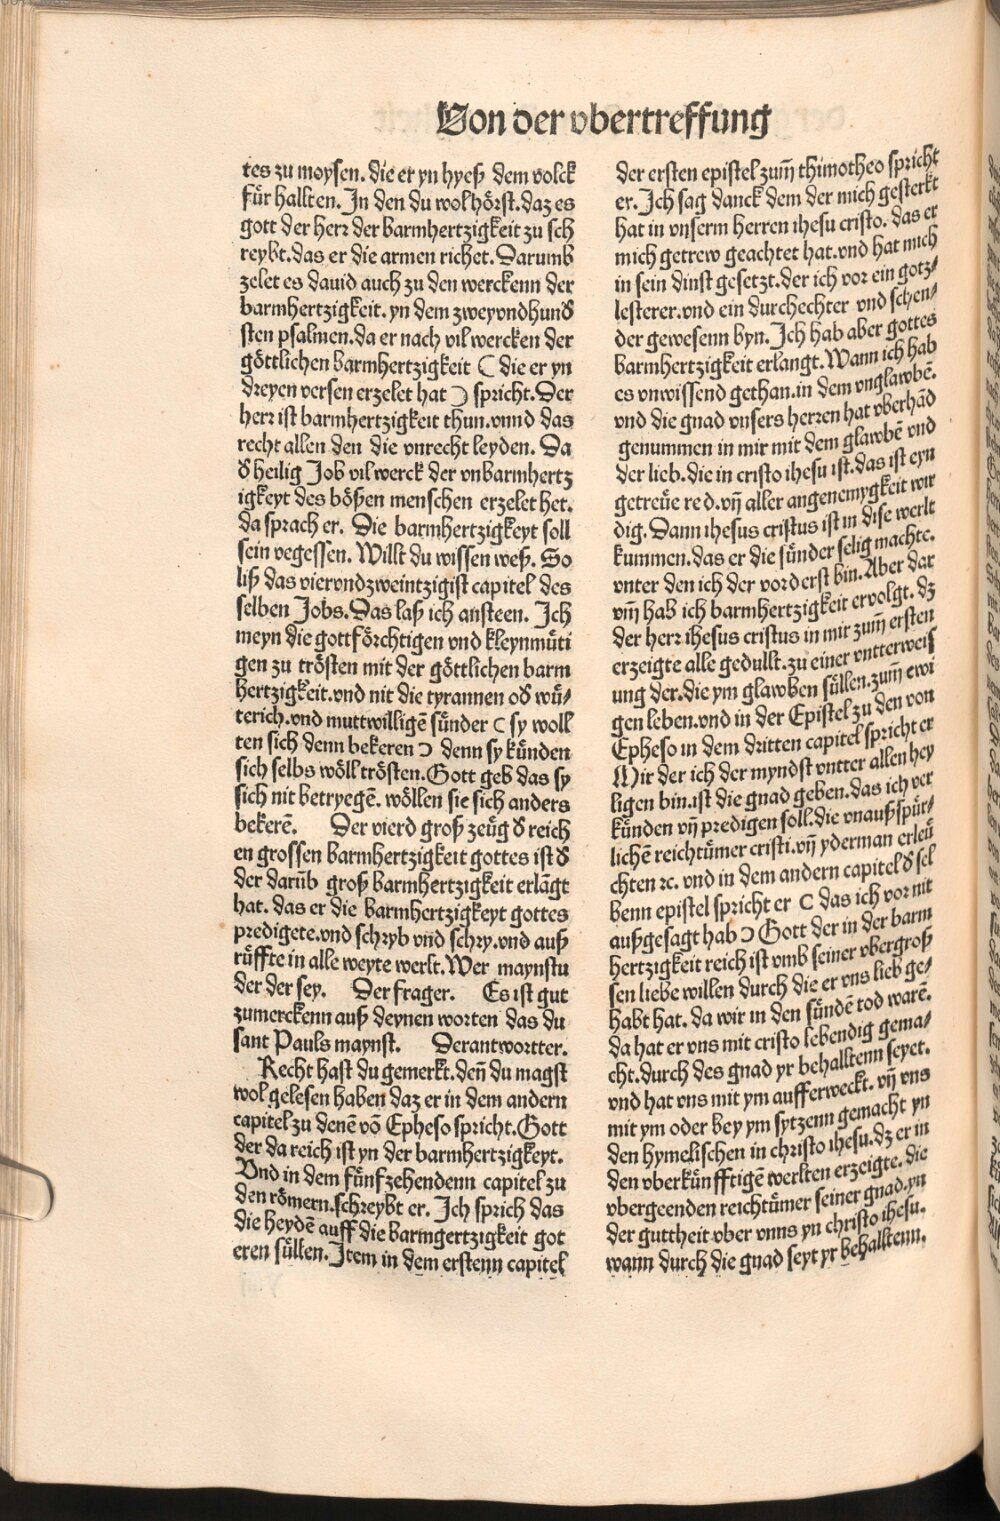 Von der vbertreffung
tes zu moysen. die er yn hyeß dem volck
für hallten. In den du wol hörst. daz es
gott der herr der barmhertzigkeit zu sch
reybt. das er die armen richet. Darumb
zelet es dauid auch zu den werckenn der
barmhertzigkeit. yn dem zweyvndhundď
sten psalmen. da er nach vil wercken der
göttlichen barmhertzigkeit ( die er yn
dreyen versen erzelet hat ) spricht. Der
herr ist barmhertzigkeit thun. vnnd das
recht allen den die vnrecht leyden. Da
ď heilig Job vil werck der vnbarmhertz
igkeyt des bößen menschen erzelet het.
da sprach er. Die barmhertzigkeyt soll
sein vegessen. Willt du wissen weß. So
liß das viervndzweintzigist capitel des
selben Jobs. Das laß ich ansteen. Ich
meyn die gottförchtigen vnd kleynmüti
gen zu trösten mit der göttlichen barm
hertzigkeit. vnd nit die tyrannen oď wü-
terich. vnd muttwilligē sünder ( sy woll
ten sich denn bekeren ) denn sy künden
sich selbs wöll trösten. Gott geb das sy
sich nit betryegē. wöllen sie sich anders
bekerē. Der vierd groß zeüg ď reich
en grossen barmhertzigkeit gottes ist ď
der darūb groß barmhertzigkeit erlāgt
hat. das er die barmhertzigkeyt gottes
predigete. vnd schryb vnd schry. vnd auß
rüffte in alle weyte werlt. Wer maynstu
der der sey. Der frager. Es ist gut
zumerckenn auß deynen worten das du
sant Pauls maynst. Derantwortter.
Recht hast du gemerkt. deñ du magst
wol gelesen haben daz er in dem andern
capitel zu denē vō Epheso spricht. Gott
der da reich ist yn der barmhertzigkeyt.
Vnd in dem fünfzehendenn capitel zu
den römern. schreybt er. Ich sprich das
die heydē auff die barmgertzigkeit got
eren süllen. Item in dem erstenn capitel
der ersten epistel zum̄ thimotheo spricht
er. Ich sag danck dem der mich gesterkt
hat in vnserm herren ihesu cristo. das er
mich getrew geachtet hat. vnd hat mich
in sein dinst gesetzt. der ich vor ein gotz-
lesterer. vnd ein durchechter vnd schen-
der gewesenn byn. Ich hab aber gottes
barmhertzigkeit erlangt. Wann ich hab
es vnwissend gethan. in dem vnglawbē.
vnd die gnad vnsers herren hat vberhād
genummen in mir mit dem glawbē vnd
der lieb. die in cristo ihesu ist. das ist eyn
getreüe red. vn̄ aller angenemygkeit wir
dig. Dann ihesus cristus ist in dise werlt
kummen. das er die sünder selig machte.
vnter den ich der vorderst bin. Aber dar
vm̄ hab ich barmhertzigkeit ervolgt. dz
der herr ihesus cristus in mir zum̄ ersten
erzeigte alle gedullt. zu einer vntterweis
ung der. die ym glawben süllen. zum̄ ewi
gen leben. vnd in der Epistel zu den von
Epheso in dem dritten capitel spricht er
Mir der ich der myndst vntter allen hey
ligen bin. ist die gnad geben. das ich ver
künden vn̄ predigen soll. die vnaußspür-
lichē reichtümer cristi. vn̄ yderman erleü
chten ⁊c. vnd in dem andern capitel ď sel
benn epistel spricht er ( das ich vor nit
außgesagt hab ) Gott der in der barm
hertzigkeit reich ist vmb seiner vbergroß
sen liebe willen durch die er vns lieb ge-
habt hat. da wir in den sündē tod warē.
da hat er vns mit cristo lebendig gema-
cht. durch des gnad yr behalltenn seyet.
vnd hat vns mit ym aufferweckt. vn̄ vns
mit ym oder bey ym sytzenn gemacht yn
den hymelischen in christo ihesu. dz er in
den vberkünfftigē werlten erzeigte. die
vbergeenden reichtümer seiner gnad. yn
der guttheit vber vnns yn christo ihesu.
wann durch die gnad seyt yr behalltenn.